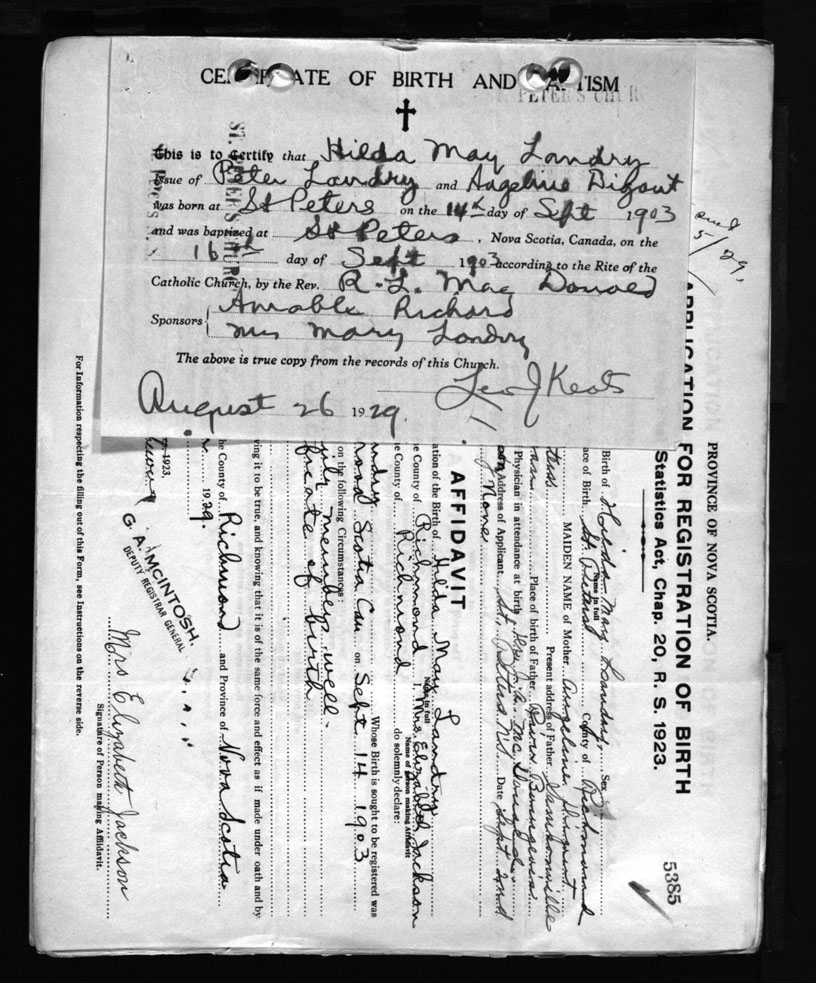 CERTIFICATE OF BIRTH AND BAPTISM
ST. PETER'S CHUR
This is to Certify that Hilda May Landry
Issue of Peter Landry and Angeline Digout
was born at St Peters on the 14th day of Sept 1903
and was baptized at St Peters, Nova Scotia, Canada, on the
16th day of Sept 1903 according to the Rite of the
Catholic Church, by the Rev. R. L. Mac Donald
Sponsors { Amable Richard
Mrs Mary Landry
The above is true copy from the records of this Church.
Leo J Keats
August 26 1929
5/29,
PROVINCE OF NOVA SCOTIA.
APPLICATION FOR REGISTRATION OF BIRTH
Statistics Act, Chap. 20, R. S. 1923.
5385
Birth of Hilda May Landry. Sex
Name in full
ace of Birth. St. Peters County of Richmond
Present address of Father
MAIDEN NAME of Mother Angeline Digout
Place of birth of Father River Bourgeois
Physician in attendance at birth
Address of Applicant. St. Peters NS. Date Sept 2nd
None
AFFIDAVIT
ation of the Birth of Hilda May Landry
Name in full
he County of Richmond I, Mrs. Elizabeth Jackson
Name of person making Affidavit
he County of Richmond do solemnly declare:
Whose Birth is sought to be registered was
ndry
Nova Scotia Can on Sept 14 1903
on the following Circumstances:
member well
ficate of birth
ving it to be true, and knowing that it is of the same force and effect as if made under oath and by
he County of Richmond and Province of Nova Scotia
1929.
1923,
G. A. McINTOSH.
DEPUTY REGISTRAR GENERAL
Mrs Elizabeth Jackson
Signature of Person making Affidavit.
For Information respecting the filling out of this Form, see Instructions on the reverse side.